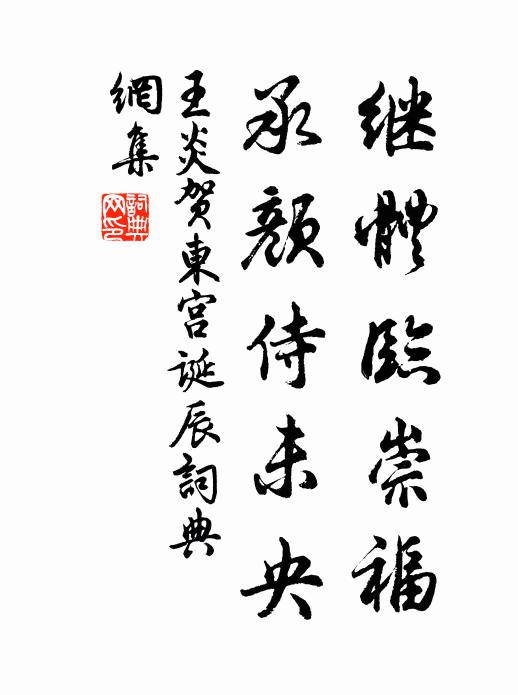 继體臨崇福
承顏侍未央
王炎贺東宫诞辰詞典
網集
詞典网印